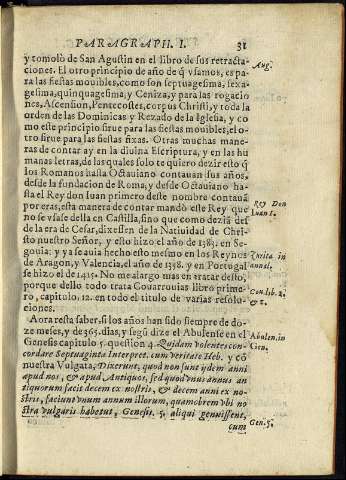 PARAGRAPH. I. 31
y tomolò de San Agustin en el libro de sus retracta-
ciones. El otro principio de año de q̃ vsamos, es pa-
ra las fiestas mouibles, como son septuagesima, sexa-
gesima, quinquagesima, y Ceniza, y para las rogacio
nes, Ascension, Pentecostes, corpus Christi, y toda la
orden de las Dominicas y Rezado de la Iglesia, y co
mo este principio sirue para las fiestas mouibles, el o-
tro sirue para las fiestas fixas. Otras muchas mane-
ras de contar ay en la diuina Escriptura, y en las hu
manas letras, de las quales solo te quiero dezir esto q̃
los Romanos hasta Octauiano contauan sus años,
desde la fundacion de Roma, y desde Octauiano ha-
sta el Rey don Iuan primero deste nombre contauã
por eras, esta manera de contar mandò este Rey que
no se vsase della en Castilla, sino que como deziã des
de la era de Cesar, dixessen de la Natiuidad de Chri-
sto nuestro Señor, y esto hizo el año de 1383. en Se-
gouia: y ya se auia hecho esto mesmo en los Reynos
de Aragon, y Valencia, el año de 1358. y en Portugal
se hizo el de 1415. No me alargo mas en tratar desto,
porque dello todo trata Couarrouias libro prime-
ro, capitulo. 12. en todo el titulo de varias resolu-
ciones.
Aora resta saber, si los años han sido siempre de do-
ze meses, y de 365. dias, y segũ dize el Abulense en el
Genesis capitulo 5. question 4. Quidam volentes con-
cordare Septuaginta Interpret. cum veritate Heb. y cõ
nuestra Vulgata, Dixerunt, quod non sunt ijdem anni
apud nos, & apud Antiquos, sed quod vnus annus an
tiquorum facit decem ex nostris, & decem anni ex no-
stris, faciunt vnum annum illorum, quamobrem vbi no
stra vulgaris habetur, Genesis. 5. aliqui genuissent,
cum
Aug.
Rey Don
Iuan 1.
Zurita in
annal.
Con. lib. 1.
Abulen. in
Gen.
Gen. 5.